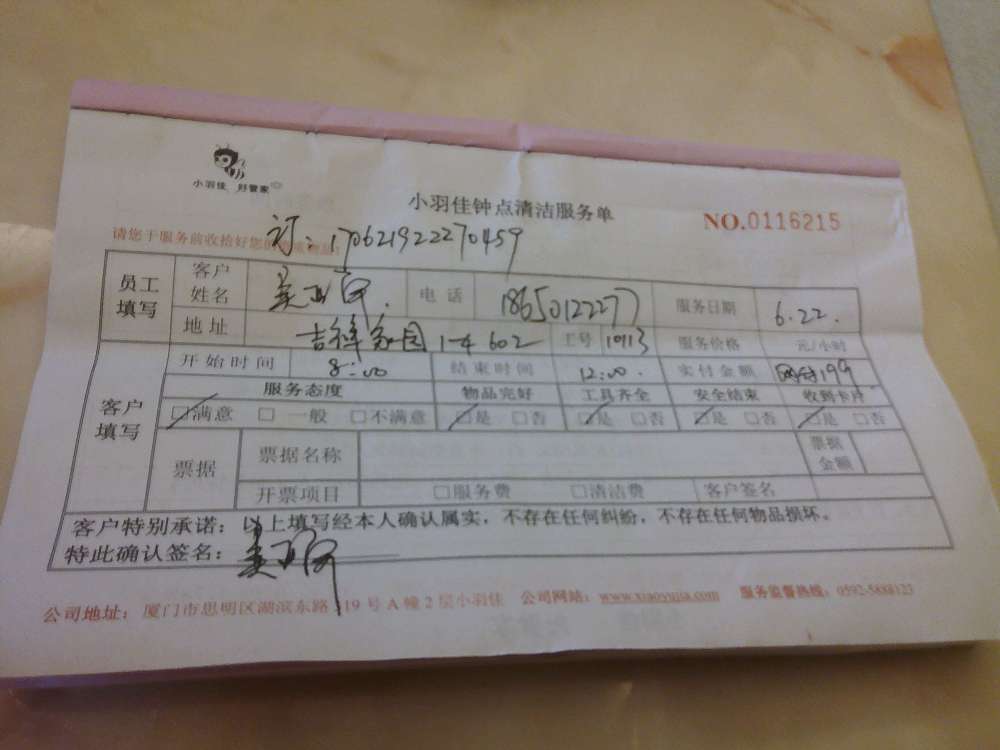 小羽佳 好管家
小羽佳钟点清洁服务单
NO.0116215
订:170621922270459
请您于服务前收拾好您的
员工填写 客户姓名 电话 18650122277 服务日期 6.22.
地址 吉祥家园 1-4 602 工号 10113 服务价格 元/小时
客户填写 开始时间 8:00 结束时间 12:00. 实付金额 199
服务态度 物品完好 工具齐全 安全结束 收到卡片
□满意 □一般 □不满意 □是 □否 □是 □否 □是 □否 □是 □否
票据 票据名称 票据金额
开票项目 □服务费 □清洁费 客户签名
客户特别承诺:以上填写经本人确认属实,不存在任何纠纷,不存在任何物品损坏。
特此确认签名:
公司地址:厦门市思明区湖滨东路 19号A幢2层小羽佳 公司网站: 服务监督热线:0592-5888123